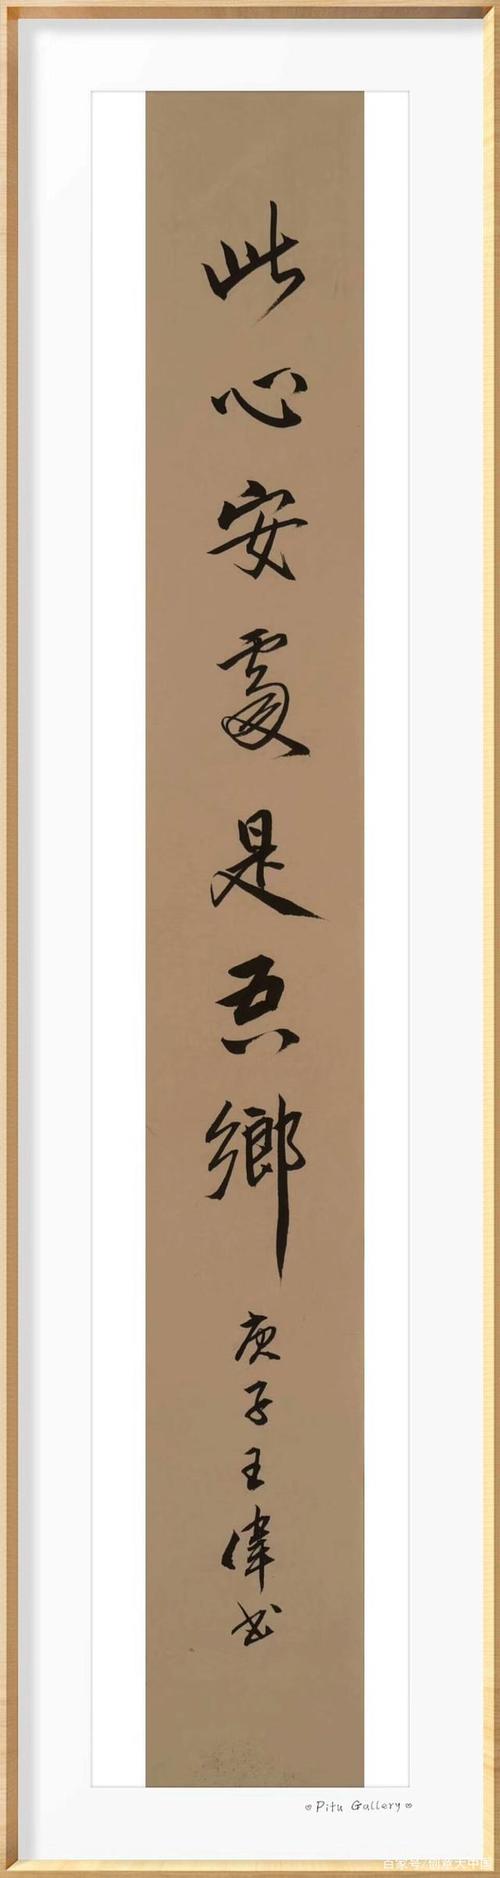 此心安處是吾鄉
庚子王偉书
Pitu Gallery
百家号/创意大中国